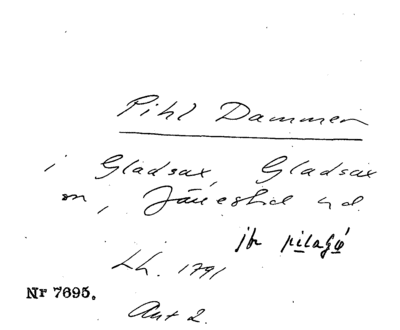 Pihl Dammen
i Gladsax, Gladsax
sn, Järrestad hd.
jfr pilagǫ́
Lh. 1791
Nr 7695.
Akt 2.